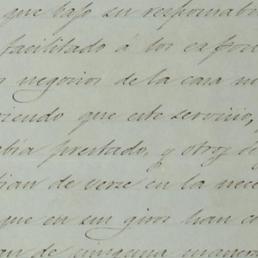 que bajo su responsabi
facilitado á los espon
negocios de la casa ne
ciendo que este servicio,
bia prestado, y otros de
dian de verse en la nece
que en sus giros han co
an de ninguna manera